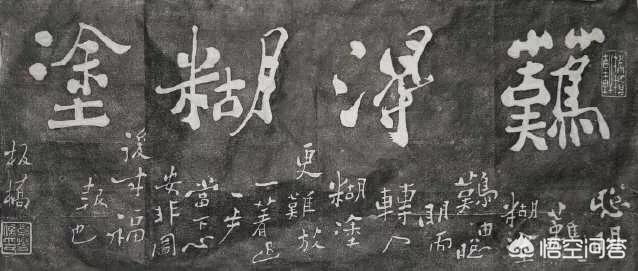 難得糊塗
聰明
難
糊塗
難由聰
明而
轉入
糊塗
更難放
一著退
一步
當下心
安非圖
後來福
報也
板橋
悟空问答